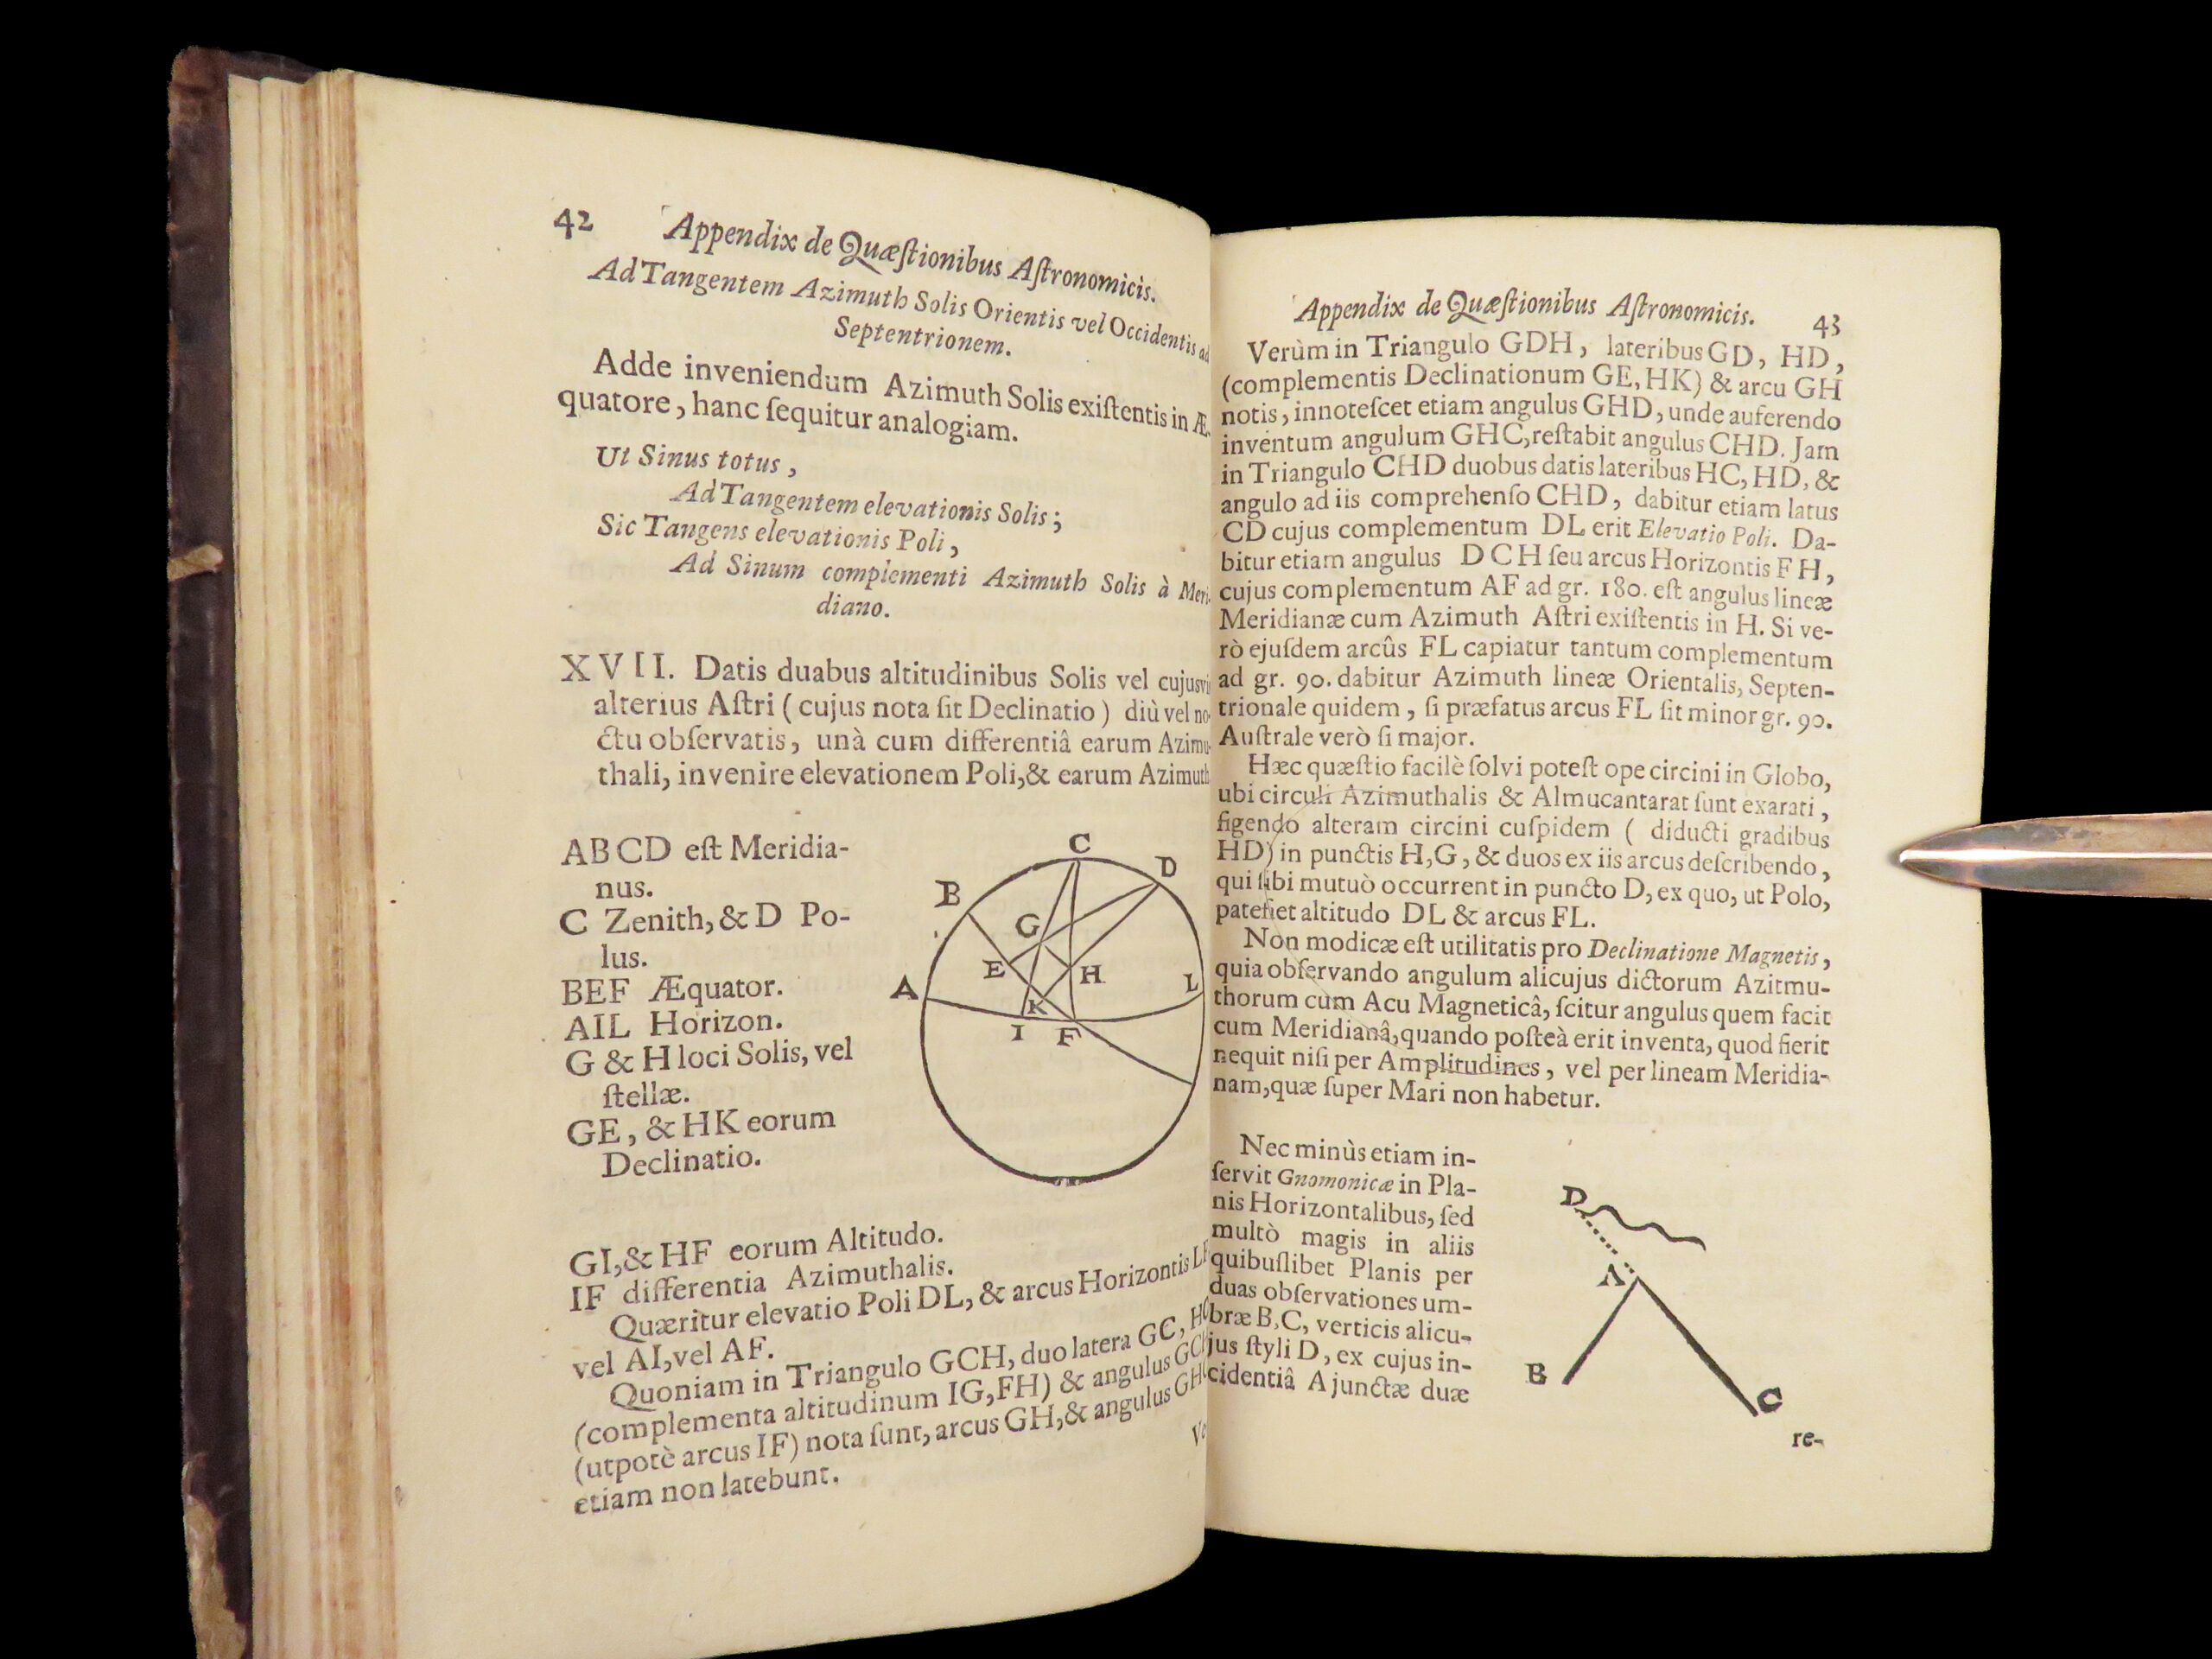 42 Appendix de Quæſtionibus Aſtronomicis.
Ad Tangentem Azimuth Solis Orientis vel Occidentis ad
Septentrionem.
Adde inveniendum Azimuth Solis exiſtentis in Æ-
quatore, hanc ſequitur analogiam.
Ut Sinus totus,
Ad Tangentem elevationis Solis;
Sic Tangens elevationis Poli,
Ad Sinum complementi Azimuth Solis à Meri-
diano.
XVII. Datis duabus altitudinibus Solis vel cujusvis
alterius Aſtri (cujus nota ſit Declinatio) diù vel no-
ctu obſervatis, unà cum differentiâ earum Azimu-
thali, invenire elevationem Poli, & earum Azimuth
ABCD eſt Meridia-
nus.
C Zenith, & D Po-
lus.
BEF Æquator.
AIL Horizon.
G & H loci Solis, vel
ſtellæ.
GE, & HK eorum
Declinatio.
C
D
B
G
E
H
A
L
K
I
F
GI, & HF eorum Altitudo.
IF differentia Azimuthalis.
Quæritur elevatio Poli DL, & arcus Horizontis LF
vel AI, vel AF.
Quoniam in Triangulo GCH, duo latera GC, HC
(complementa altitudinum IG, FH) & angulus GCH
(utpotè arcus IF) nota ſunt, arcus GH, & angulus GHC
etiam non latebunt.
Appendix de Quæſtionibus Aſtronomicis. 43
Verùm in Triangulo GDH, lateribus GD, HD,
(complementis Declinationum GE, HK) & arcu GH
notis, innoteſcet etiam angulus GHD, unde auferendo
inventum angulum GHC, reſtabit angulus CHD. Jam
in Triangulo CHD duobus datis lateribus HC, HD, &
angulo ad iis comprehenſo CHD, dabitur etiam latus
CD cujus complementum DL erit Elevatio Poli. Da-
bitur etiam angulus DCH ſeu arcus Horizontis FH,
cujus complementum AF ad gr. 180. eſt angulus lineæ
Meridianæ cum Azimuth Aſtri exiſtentis in H. Si ve-
rò ejuſdem arcûs FL capiatur tantum complementum
ad gr. 90. dabitur Azimuth lineæ Orientalis, Septen-
trionale quidem, ſi præfatus arcus FL ſit minor gr. 90.
Auſtrale verò ſi major.
Hæc quæſtio facilè ſolvi poteſt ope circini in Globo,
ubi circuli Azimuthalis & Almucantarat ſunt exarati,
figendo alteram circini cuſpidem ( diducti gradibus
HD) in punctis H, G, & duos ex iis arcus deſcribendo,
qui ſibi mutuò occurrent in puncto D, ex quo, ut Polo,
patefiet altitudo DL & arcus FL.
Non modicæ eſt utilitatis pro Declinatione Magnetis,
quia obſervando angulum alicujus dictorum Azitmu-
thorum cum Acu Magneticâ, ſcitur angulus quem facit
cum Meridianâ, quando poſteà erit inventa, quod fierit
nequit niſi per Amplitudines, vel per lineam Meridia-
nam, quæ ſuper Mari non habetur.
Nec minùs etiam in-
ſervit Gnomonicæ in Pla-
nis Horizontalibus, ſed
multò magis in aliis
quibuſlibet Planis per
duas obſervationes um-
bræ B, C, verticis alicu-
jus ſtyli D, ex cujus in-
cidentiâ A junctæ duæ
D
A
B
C
re-